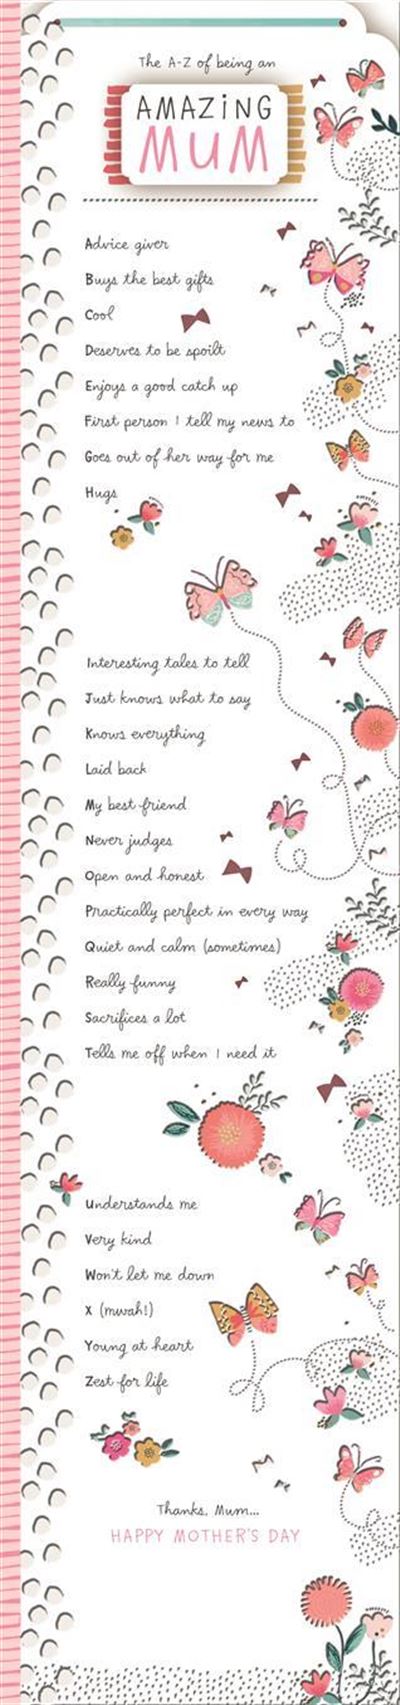 The A-Z of being an
AMAZiNG
MUM
Advice giver
Buys the best gifts
Cool
Deserves to be spoilt
Enjoys a good catch up
First person I tell my news to
Goes out of her way for me
Hugs
Interesting tales to tell
Just knows what to say
Knows everything
Laid back
My best friend
Never judges
Open and honest
Practically perfect in every way
Quiet and calm (sometimes)
Really funny
Sacrifices a lot
Tells me off when I need it
Understands me
Very kind
Won't let me down
X (mwah!)
Young at heart
Zest for life
Thanks, Mum...
HAPPY MOTHER'S DAY